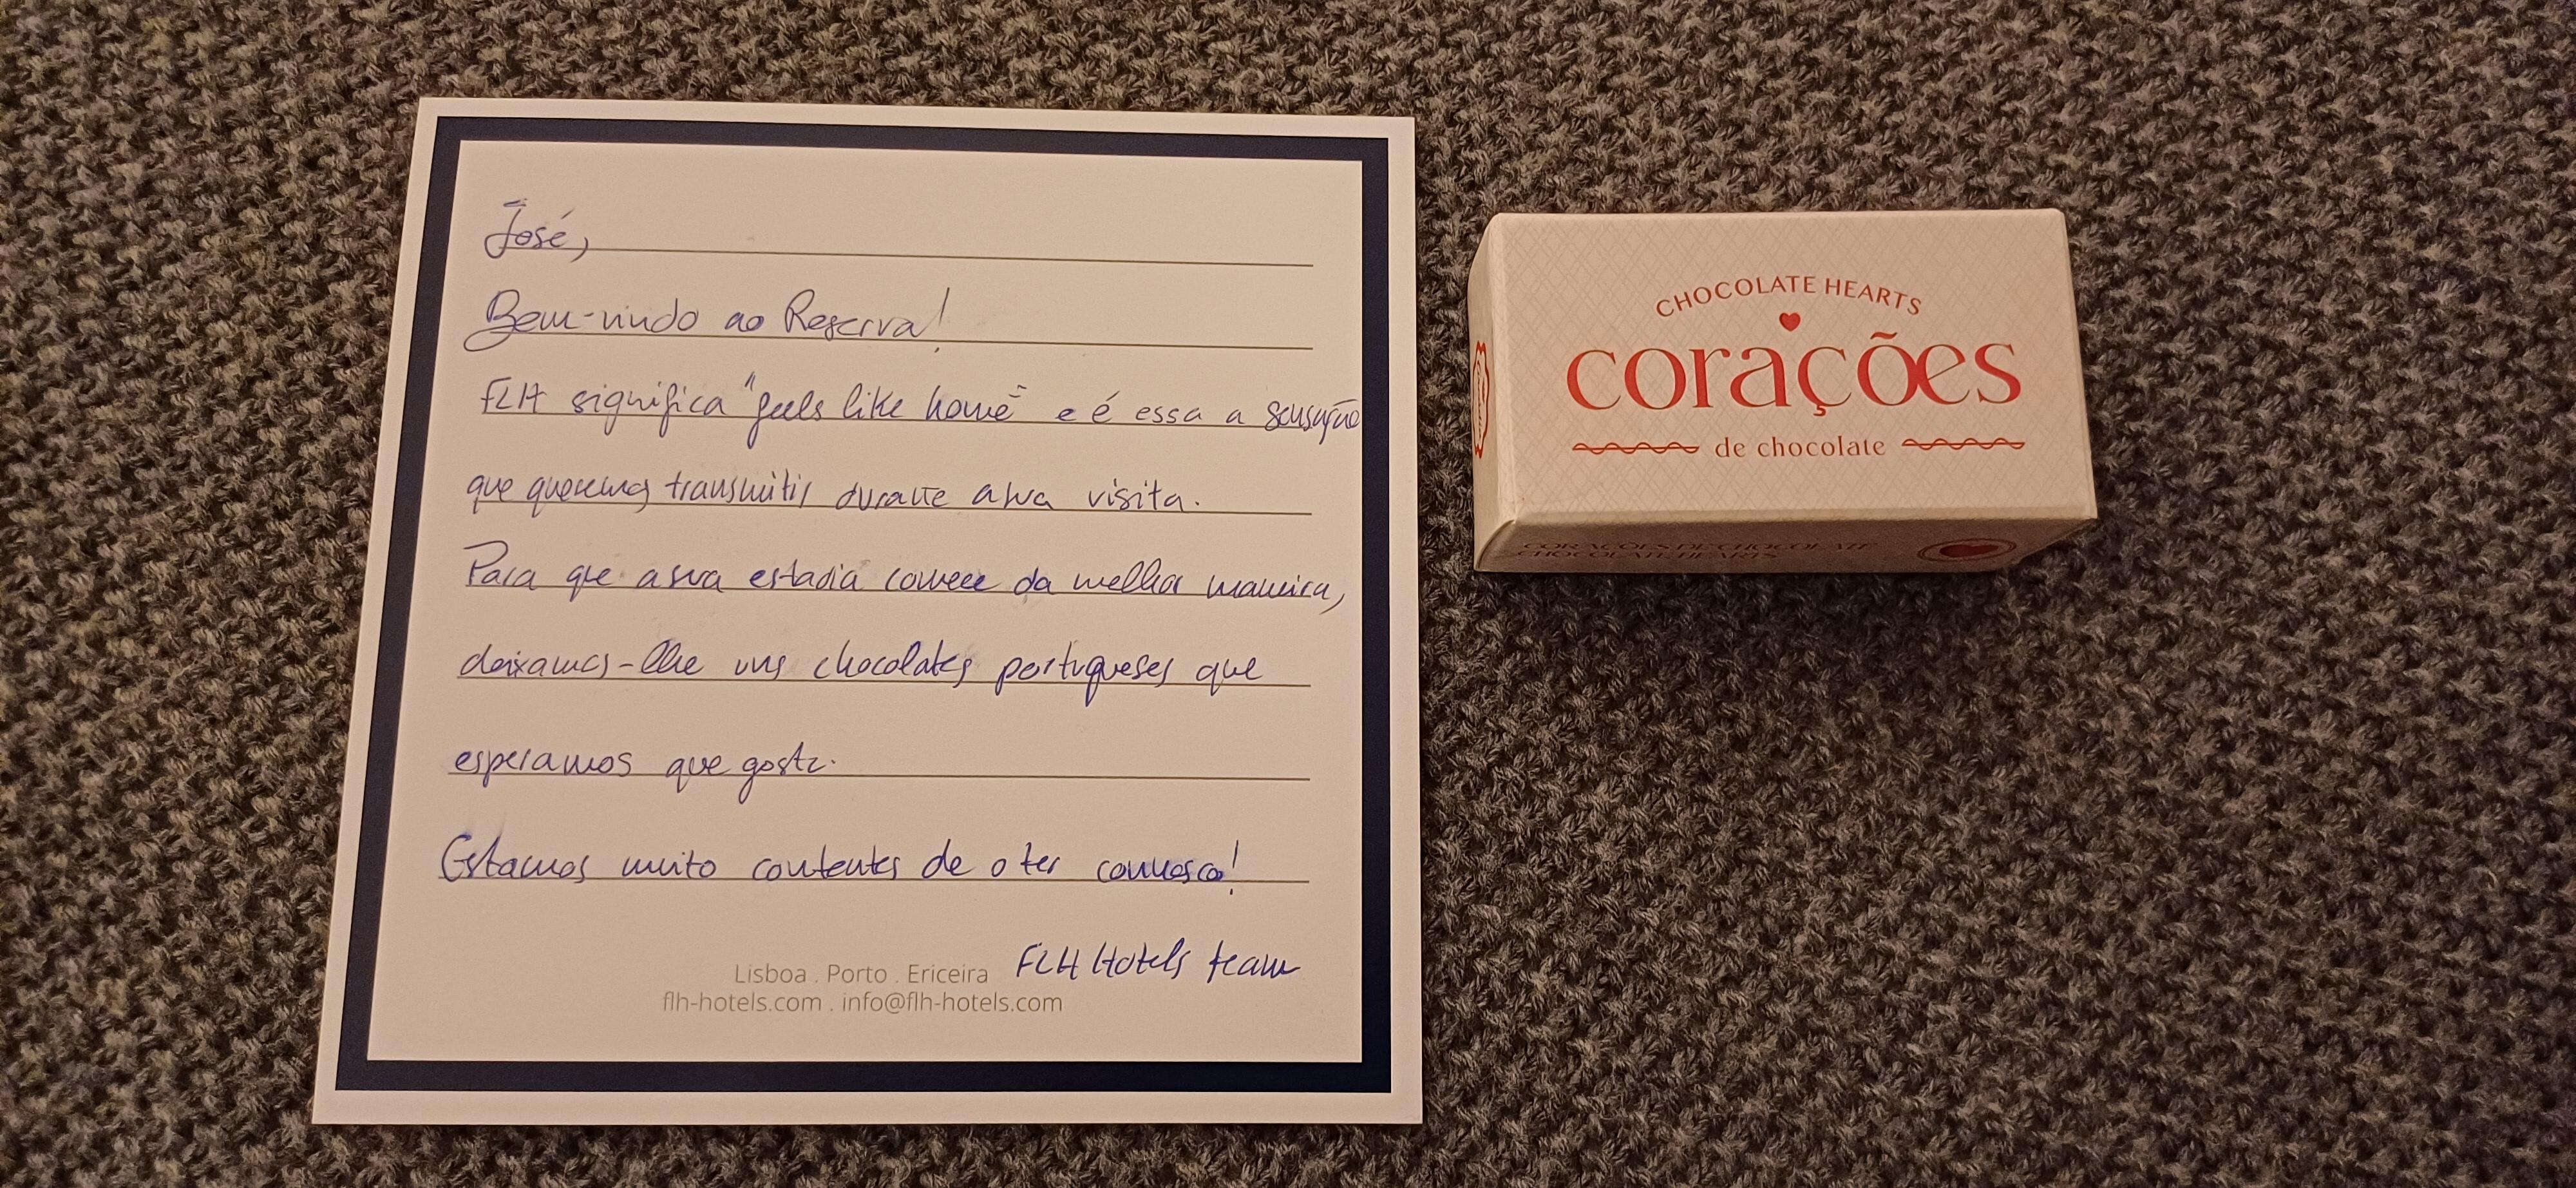 José,
Bem-vindo ao Reserva!
FLH significa "feels like home" e é essa a sensação
que queremos transmitir durante a sua visita.
Para que a sua estadia comece da melhor maneira,
deixamos-lhe uns chocolates portugueses que
esperamos que goste.
Estamos muito contentes de o ter connosco!
FLH Hotels team
Lisboa . Porto . Ericeira
flh-hotels.com . info@flh-hotels.com
CHOCOLATE HEARTS
corações
de chocolate
CORAÇÕES DE CHOCOLATE
CHOCOLATE HEARTS